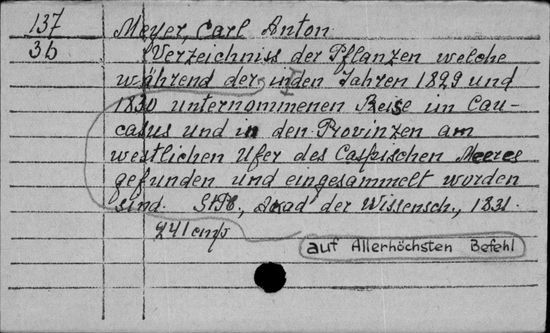 137 Meyer, Carl Anton
3b Verzeichniss der Pflanzen welche
während der in den Jahren 1829 und
1830 unternommenen Reise im Cau-
casus und in den Provinzen am
westlichen Ufer des Caspischen Meeres
gefunden und eingesammelt worden
sind. StPb., Akad der Wissensch., 1831.
241 стр
auf Allerhöchsten Befehl